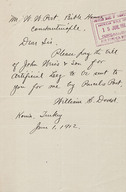 Mr. W. W. Peet, Bible House
Constantinople.
Dear Sir:
Please pay the bill
of John Weiss & Son for
Antiphrol Leg to be sent to
you for me by Parcels Post.
William S. Dodd.
Konia, Turkey
June 1, 1912.